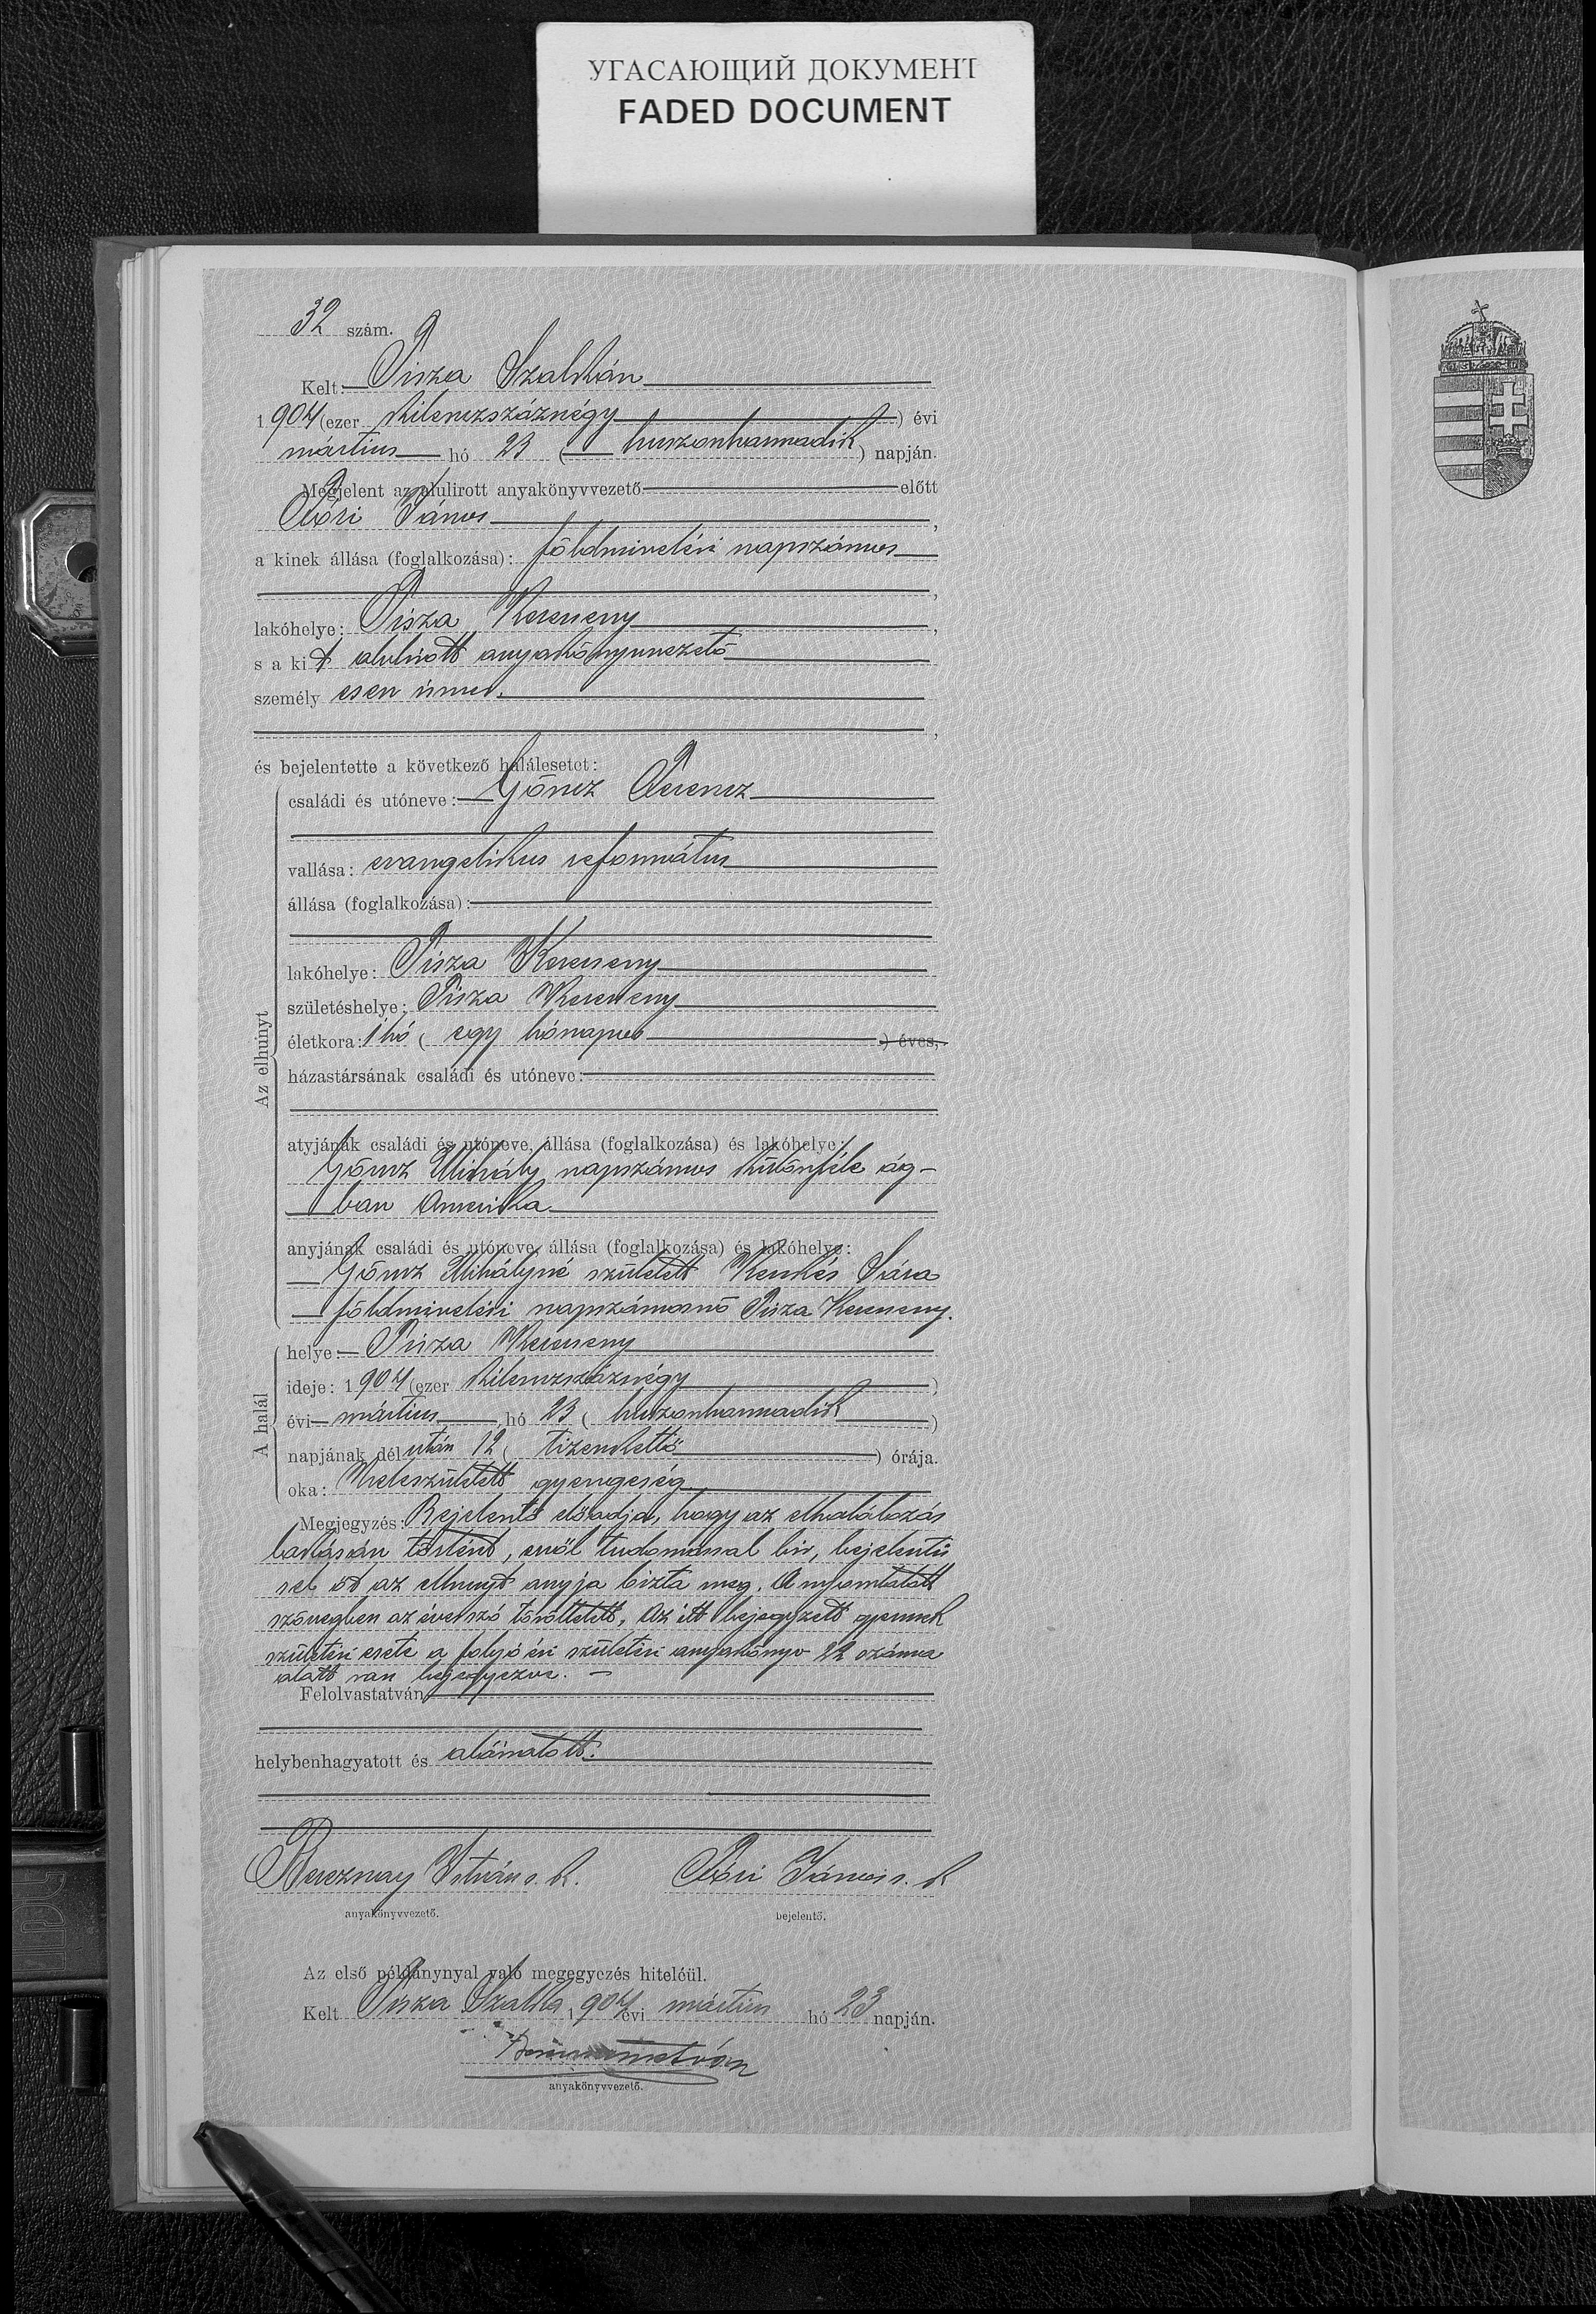 УГАСАЮЩИЙ ДОКУМЕНТ
FADED DOCUMENT
32 szám.
Kelt: Tisza Szalkán
1904 (ezer kilenczszáznégy) évi
mártius hó 23 (huszonharmadik) napján.
Megjelent az alulirott anyakönyvvezető előtt
János,
a kinek állása (foglalkozása): földmivelési napszámos
,
lakóhelye: Tisza Kerecseny,
s a kit alulirott anyakönyvvezető
személyesen ismer.
,
és bejelentette a következő halálesetet:
Az elhunyt
családi és utóneve: Göncz Ferencz
vallása: evangelikus református
állása (foglalkozása):
lakóhelye: Tisza Kerecseny
születéshelye: Tisza Kerecseny
életkora: 1 hó (egy hónapos) éves,
házastársának családi és utóneve:
atyjának családi és utóneve, állása (foglalkozása) és lakóhelye:
Göncz Mihály napszámos különféle ág-
ban Amerika
anyjának családi és utóneve, állása (foglalkozása) és lakóhelye:
Göncz Mihályné született Sára
földmivelési napszámosnő Tisza Kerecseny.
A halál
helye: Tisza Kerecseny
ideje: 1904 (ezer kilenczszáznégy)
évi mártius hó 23 (huszonharmadik)
napjának délután 12 (tizenkettő) órája.
oka: Veleszületett gyengeség
Megjegyzés: Bejelentő előadja, hogy az elhalálozás
lakásán történt, erről tudomással bir, bejelentés
sel őt az elhunyt anyja bizta meg. A nyomtatott
szövegben az éves szó töröltetett. Az itt bejegyzett gyermek
születési esete a folyó évi születési anyakönyv 22 száma
alatt van bejegyezve. –
Felolvastatván,
helybenhagyatott és aláiratott.
Bereznay István s. k.
János s. k
anyakönyvvezető.
bejelentő.
Az első példánynyal való megegyezés hiteléül.
Kelt Tisza Szalka 1904 évi mártius hó 23 napján.
István
anyakönyvvezető.